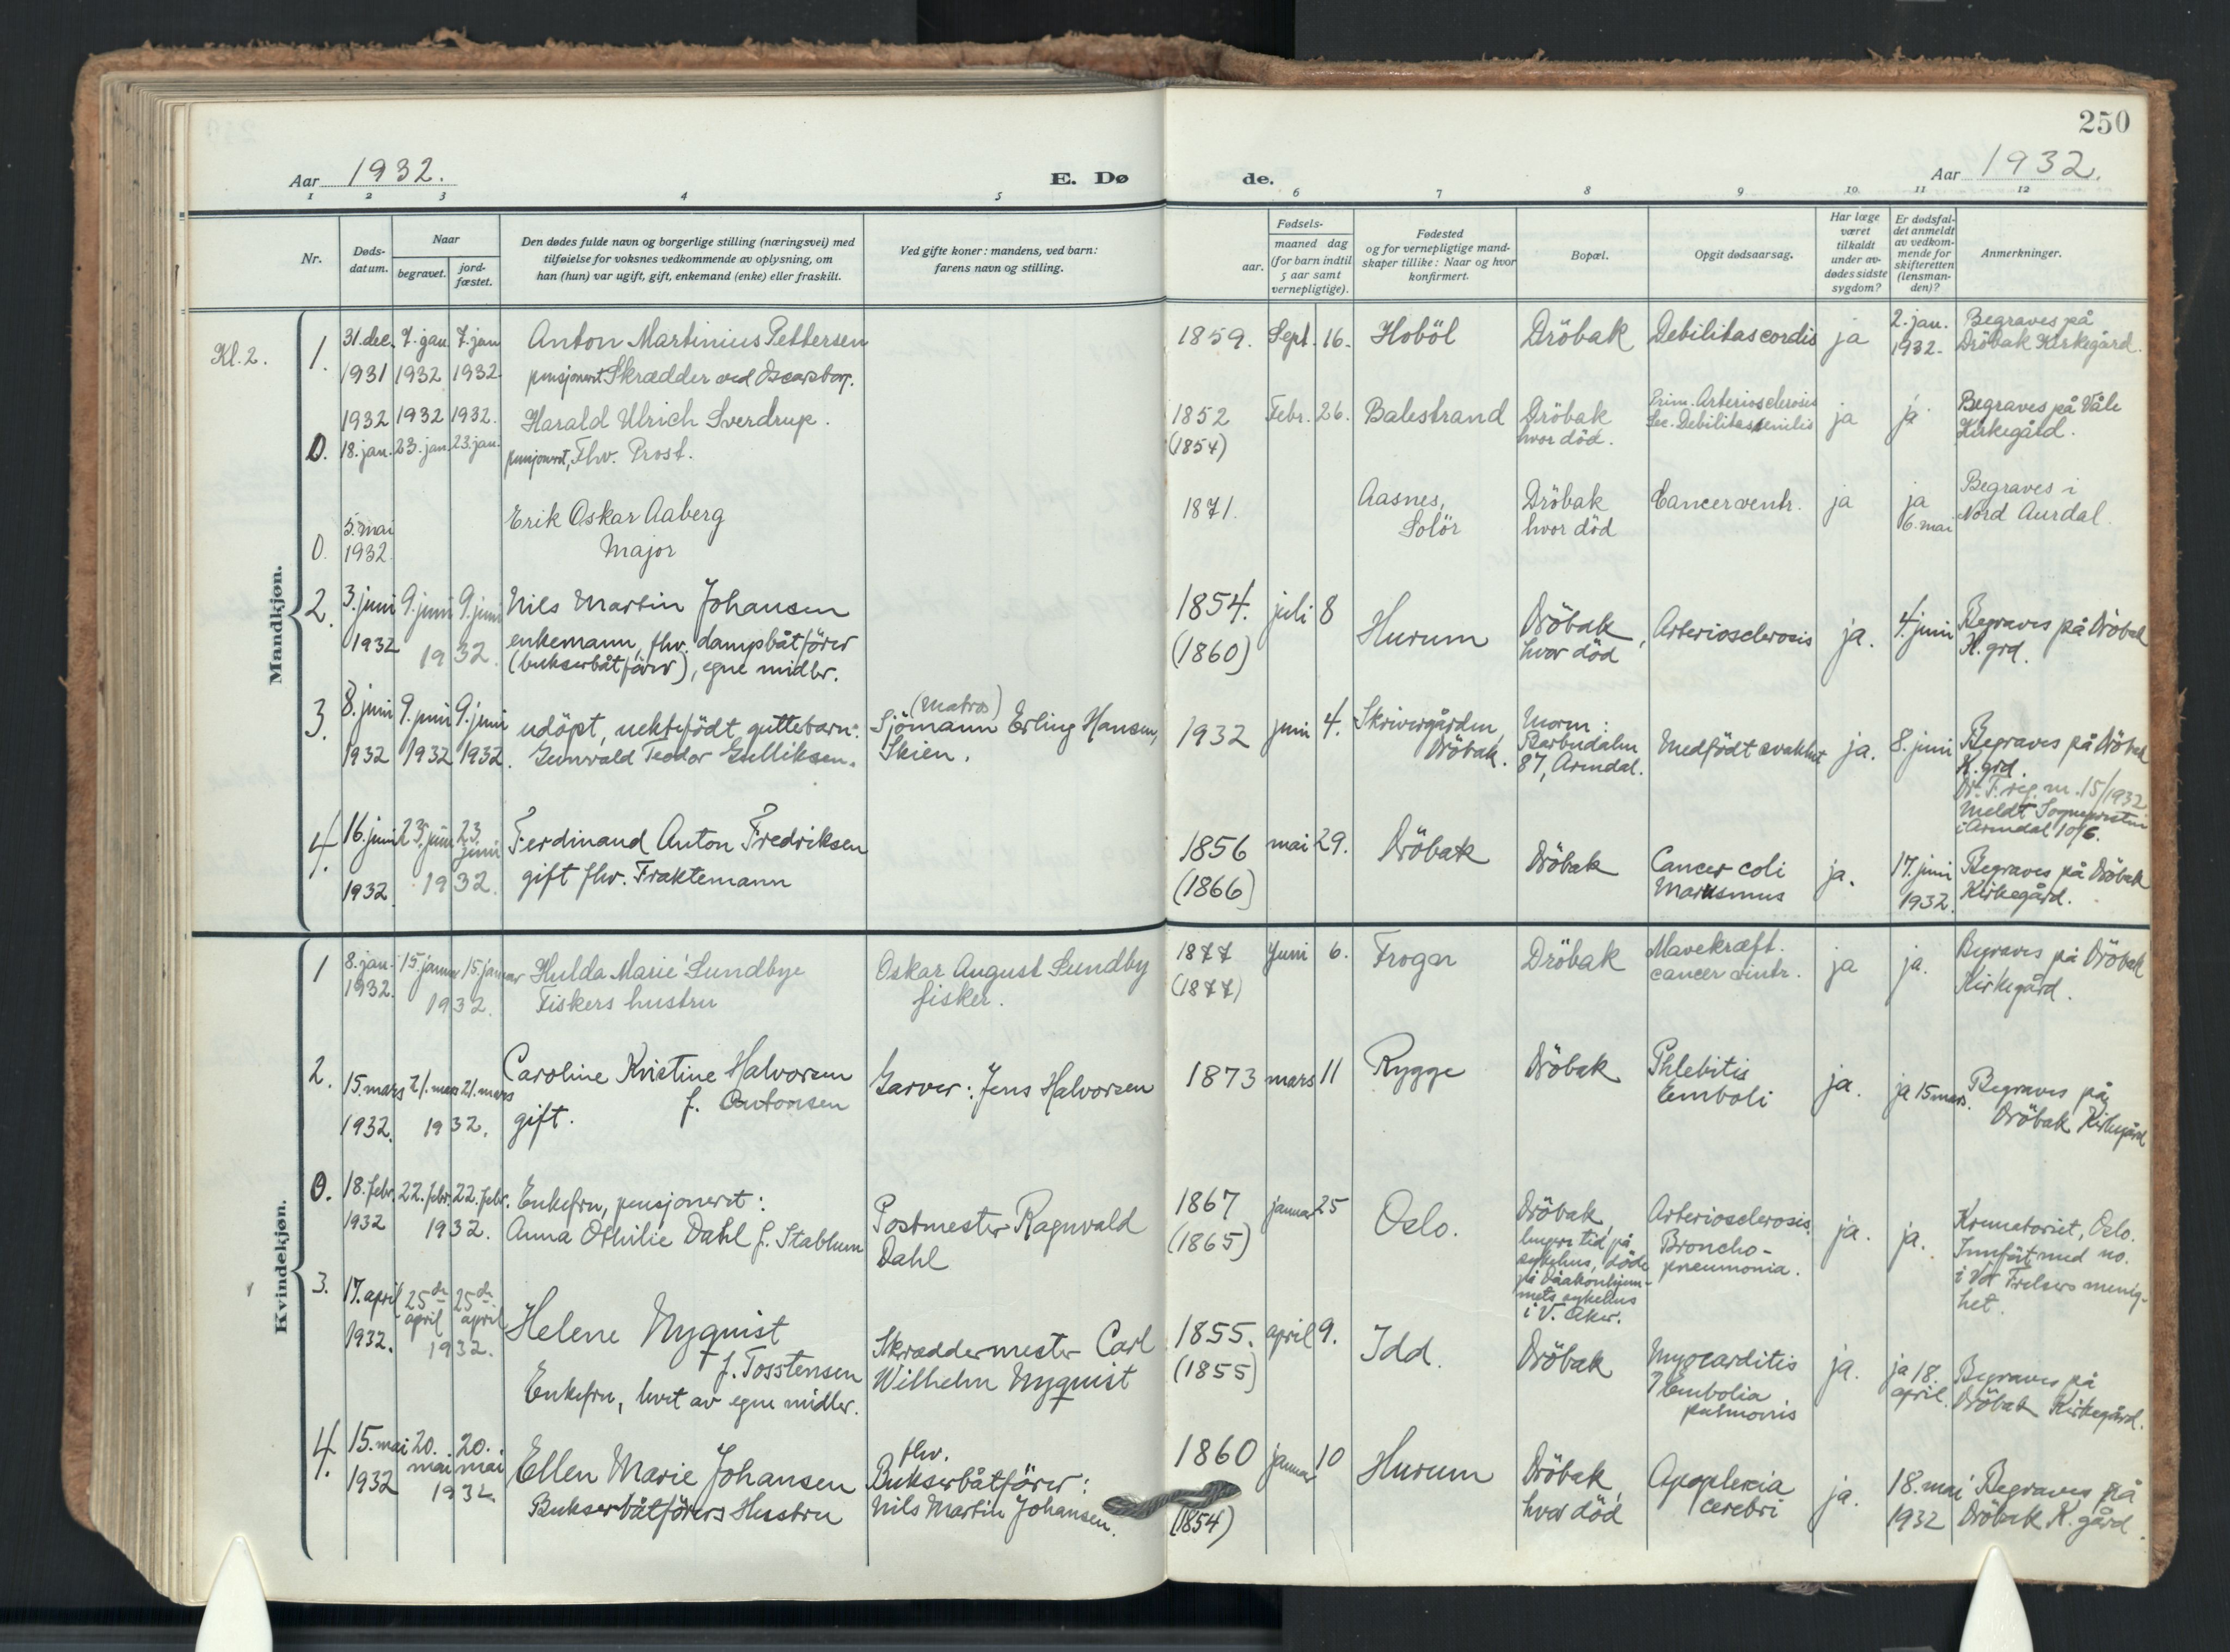 250
Aar 1932.
E. Dø
de.
Aar 1932.
1 2 3 4 5 6 7 8 9 10 11 12
Nr.
Døds-
datum.
Naar
begravet.
jord-
fæstet.
Den dødes fulde navn og borgerlige stilling (næringsvei) med
tilføielse for voksnes vedkommende av oplysning, om
han (hun) var ugift, gift, enkemand (enke) eller fraskilt.
Ved gifte koner: mandens, ved barn:
farens navn og stilling.
Fødsels-
aar.
maaned dag
(for barn indtil
5 aar samt
vernepligtige).
Fødested
og for vernepligtige mand-
skaper tillike: Naar og hvor
konfirmert.
Bopæl.
Opgit dødsaarsag.
Har læge
været
tilkaldt
under av-
dødes sidste
sygdom?
Er dødsfal-
det anmeldt
av vedkom-
mende for
skifteretten
(lensman-
den)?
Anmerkninger.
Mandkjøn.
Kl. 2.
1. 31. dec. 7. jan. 7. jan
1931 1932 1932.
Anton Martinius Pettersen
pensjonert Skrædder ved Oscarsborg.
1859. Sept. 16. Hoböl
Dröbak
Debilitas cordis
ja
2. jan.
1932.
Begraves på
Dröbak Kirkegård.
1932 1932 1932.
0. 18. jan. 23. jan. 23. jan.
Harald Ulrich Sverdrup.
pensjonert, Fhv. Prost.
1852 Febr. 26. Balestrand
(1854)
Dröbak
hvor död.
Prim. Arteriosclerosis
Sec. Debilitas senilis
ja
ja
Begraves på Våle
Kirkegård.
0. 5. mai
1932.
Erik Oskar Aaberg
Major
1871.
Aasnes,
Solör
Dröbak
hvor död
Cancer ventr.
ja
ja
6. mai
Begraves i
Nord Aurdal.
2. 3. juni 9. juni 9. juni
1932 1932.
Nils Martin Johansen
enkemann, fhv. dampbåtförer
(bukserbåtförer), egne midler.
1854. juli 8
(1860)
Hurum
Dröbak,
hvor död
Arteriosclerosis
ja.
4. juni
Begraves på Dröbak
K. grd.
3. 8. juni 9. juni 9. juni
1932 1932 1932.
udöpt, uektefödt guttebarn:
Gunvald Teodor Gulliksen.
(Matros)
Sjömann Erling Hansen,
Skien.
1932 juni 4.
Skrivergården,
Dröbak.
Morm:
Barbudalen
87, Arendal.
Medfödt svakhet
ja.
8. juni
Begraves på Dröbak
K. grd.
Dr. F. reg. nr. 15/1932
Meldt Sognepresten
i Arendal 10/6.
4. 16. juni 23. juni 23. juni
1932. 1932.
Ferdinand Anton Fredriksen
gift fhv. Fraktemann
1856 mai 29.
(1866)
Dröbak
Dröbak
Cancer coli
Marasmus
ja.
17. juni
1932.
Begraves på Dröbak
Kirkegård.
Kvindekjøn.
1 8. jan. 15. januar 15. januar
1932. 1932.
Hulda Marie Sundbye
Fiskers hustru
Oskar August Sundby
fisker.
1877 Juni 6.
(1877)
Frogn
Dröbak
Mavekræft.
cancer vintr.
ja
ja.
Begraves på Dröbak
Kirkegård.
2. 15. mars 21. mars 21. mars
1932. 1932.
Caroline Kristine Halvorsen
f. Antonsen
gift.
Garver: Jens Halvorsen
1873 mars 11
Rygge
Dröbak
Phlebitis
Emboli
ja.
ja 15 mars.
Begraves på
Dröbak Kirkegård
0. 18. febr. 22. febr. 22. febr.
1932 1932.
Enkefru, pensjonert:
Anna Othilie Dahl f. Stablum
Postmester Ragnvald
Dahl
1867 januar 25
(1865)
Oslo.
Dröbak,
lengre tid på
sykehus, döde
på Diakonhjem-
mets sykehus
i V. Aker.
Arteriosclerosis.
Broncho-
pneumonia.
ja.
ja.
Krematoriet, Oslo.
Innfört med no.
i Vår Frelsers menig-
het.
3. 17. april 25de april 25de april
1932. 1932.
Helene Nyquist
f. Tosstensen
Enkefru, levet av egne midler.
Skræddermester Carl
Wilhelm Nyquist
1855. april 9.
(1855)
Idd.
Dröbak
Myocarditis
? Embolia
pulmonis
ja.
ja 18.
april.
Begraves på
Dröbak Kirkegård.
4. 15. mai 20. mai 20. mai
1932 1932.
Ellen Marie Johansen
Bukserbåtförers Hustru
fhv.
Bukserbåtförer:
Nils Martin Johansen.
1860 januar 10
(1854)
Hurum
Dröbak,
hvor död
Apoplexia
cerebri
ja.
18. mai
1932
Begraves på
Dröbak K. gård.